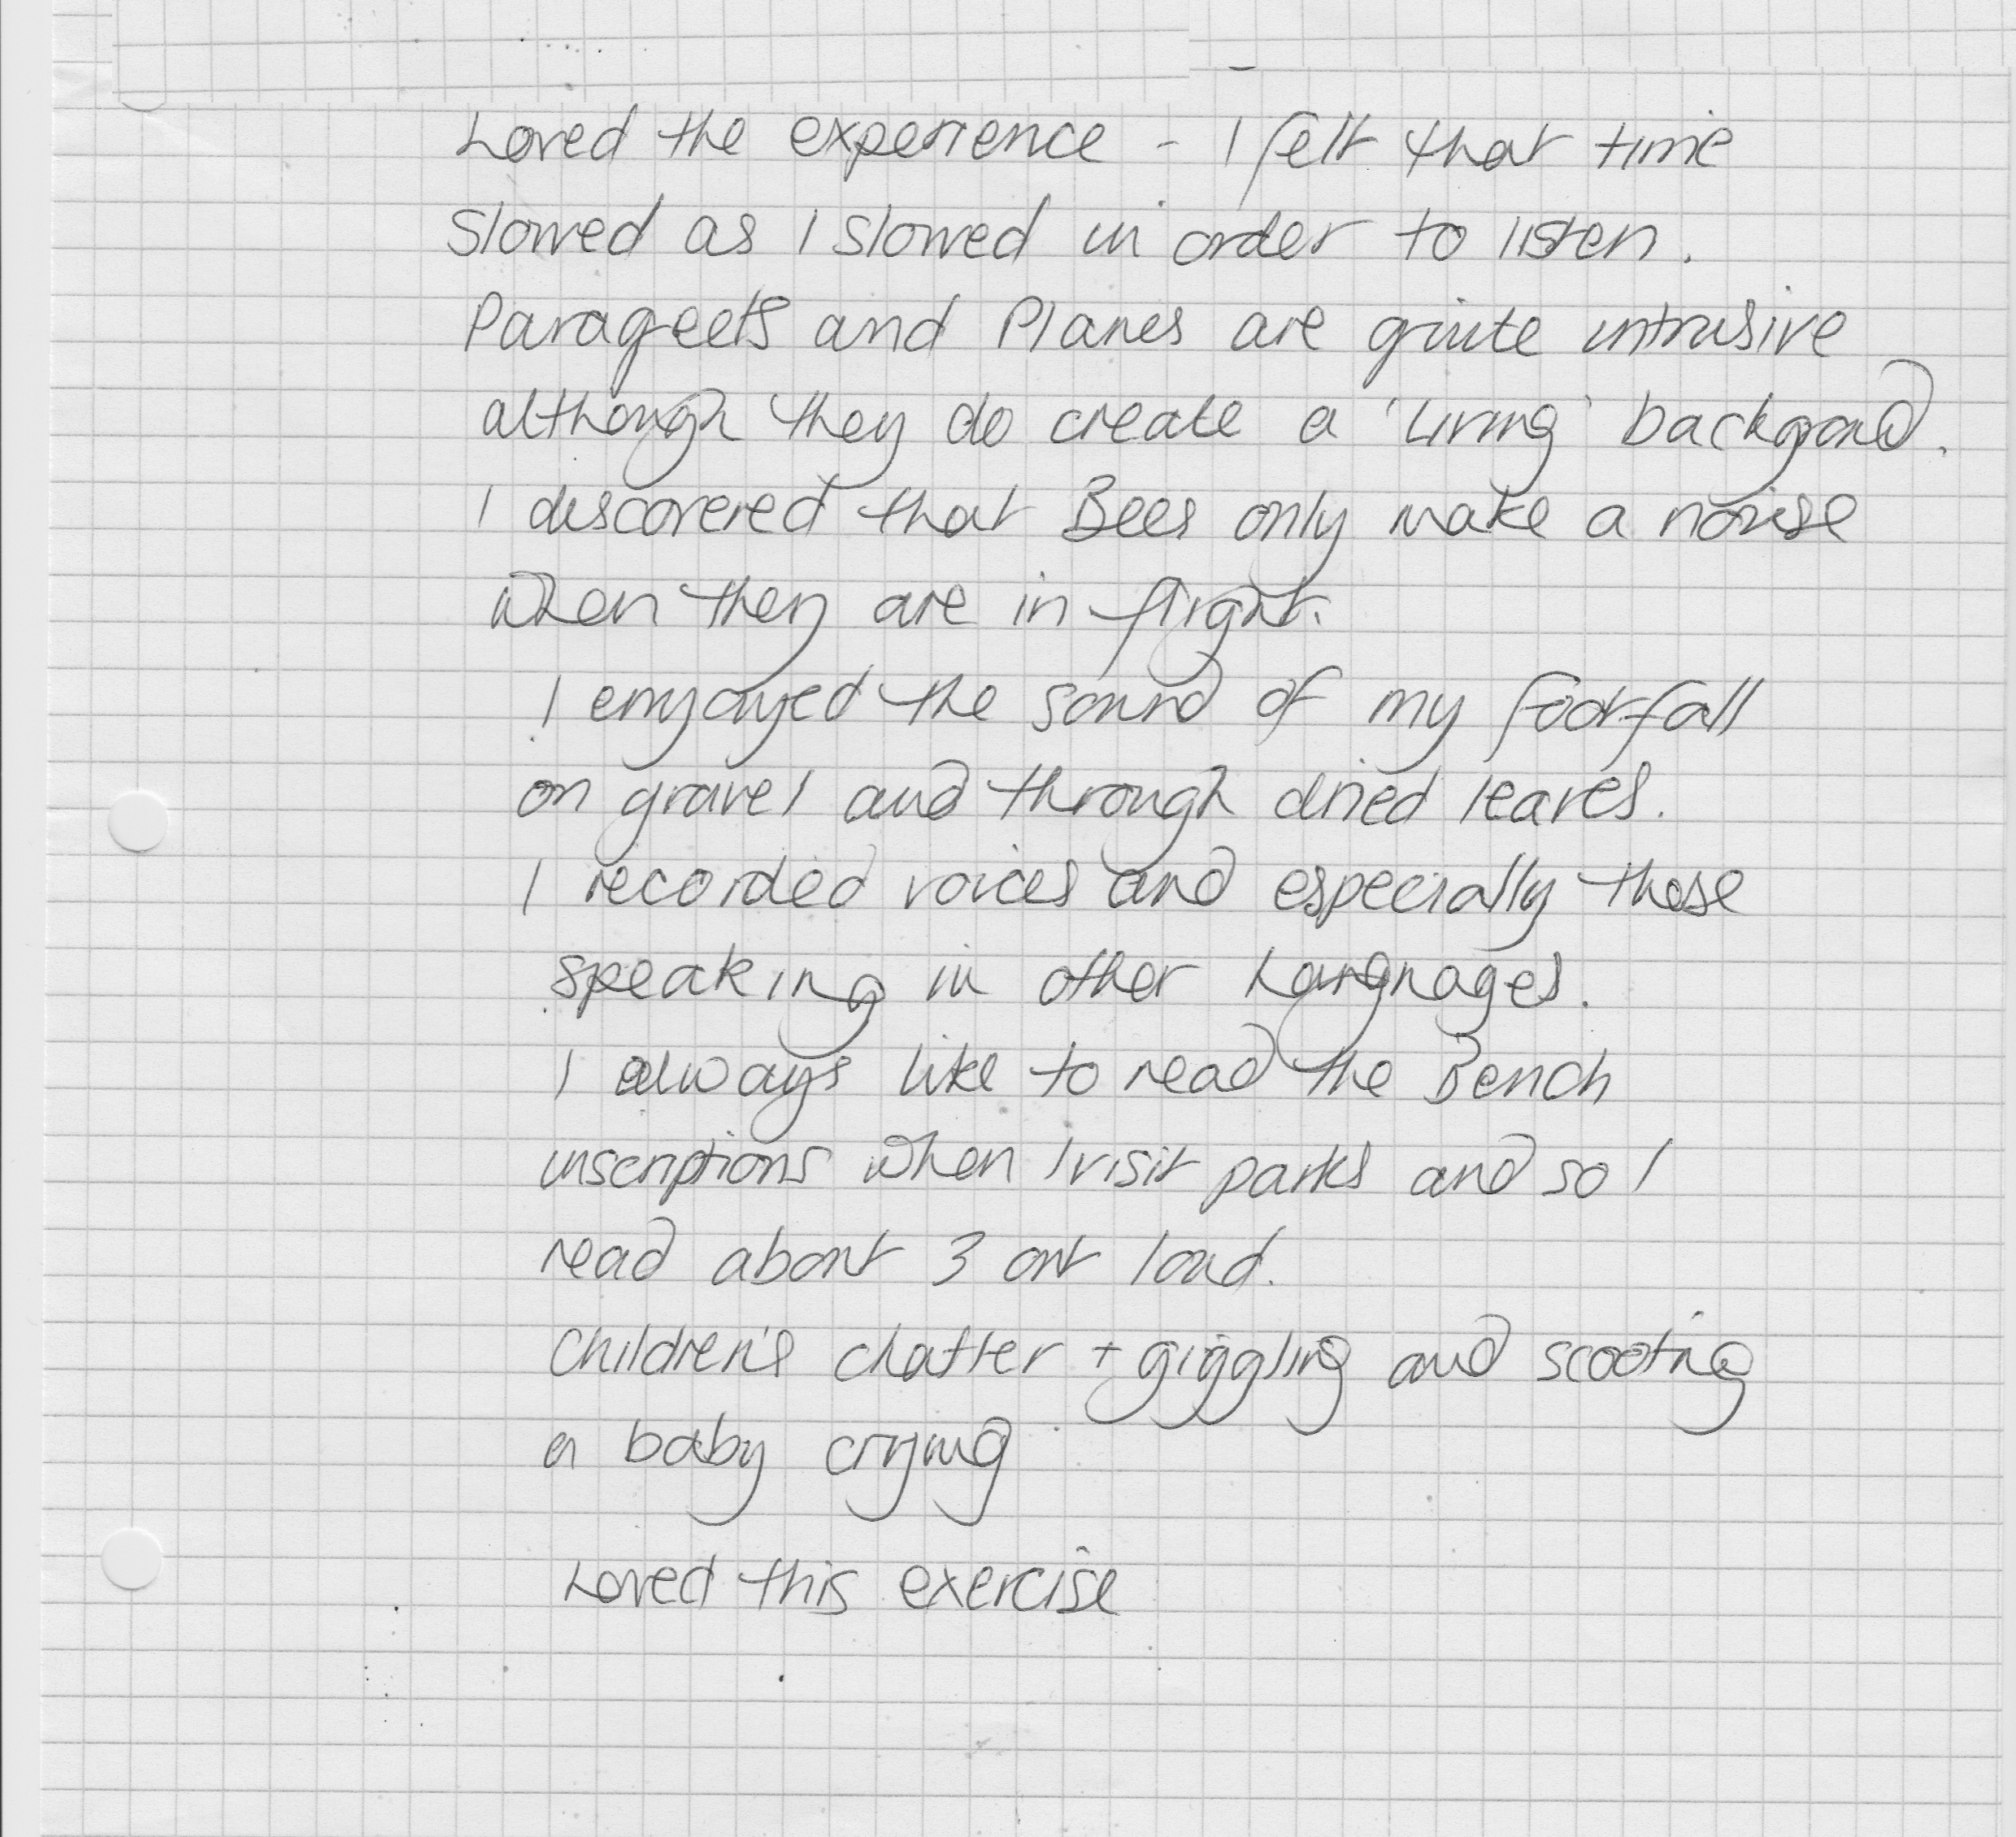 Loved the experience - I felt that time
Slowed as I slowed in order to listen.
Parageets and Planes are quite intrusive
although they do create a 'Living' backgrond.
I discovered that Bees only make a noise
when they are in flight.
I enjoyed the sound of my footfall
on gravel and through dried leaves.
I recorded voices and especially those
speaking in other Languages.
I always like to read the Bench
inscriptions when I visit parks and so I
read about 3 out loud.
Children's chatter + giggling and scooting
a baby crying
Loved this exercise